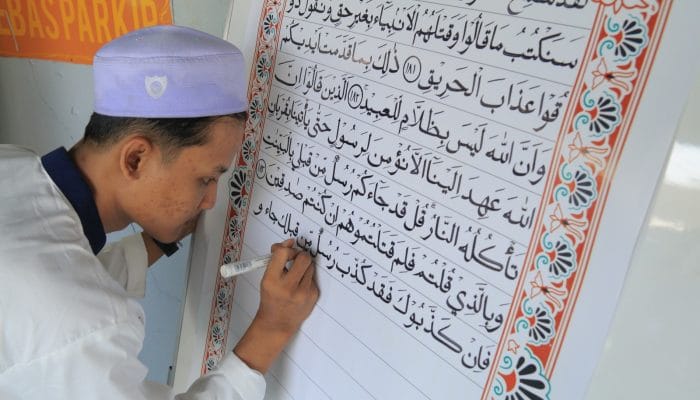 EBASPARKIR
سنكتب ما قالوا وقتلهم الأنبياء بغير حق ونقول ذو
قوا عذاب الحريق ﴿١٨١﴾ ذلك بما قدمت أيديكم
وأن الله ليس بظلام للعبيد ﴿١٨٢﴾ الذين قالوا إن
الله عهد إلينا ألا نؤمن لرسول حتى يأتينا بقربان
تأكله النار قل قد جاءكم رسل من قبلي بالبينت
وبالذي قلتم فلم قتلتموهم إن كنتم صدقين ﴿١٨٣﴾
فإن كذبوك فقد كذب رسل من قبلك جاء و